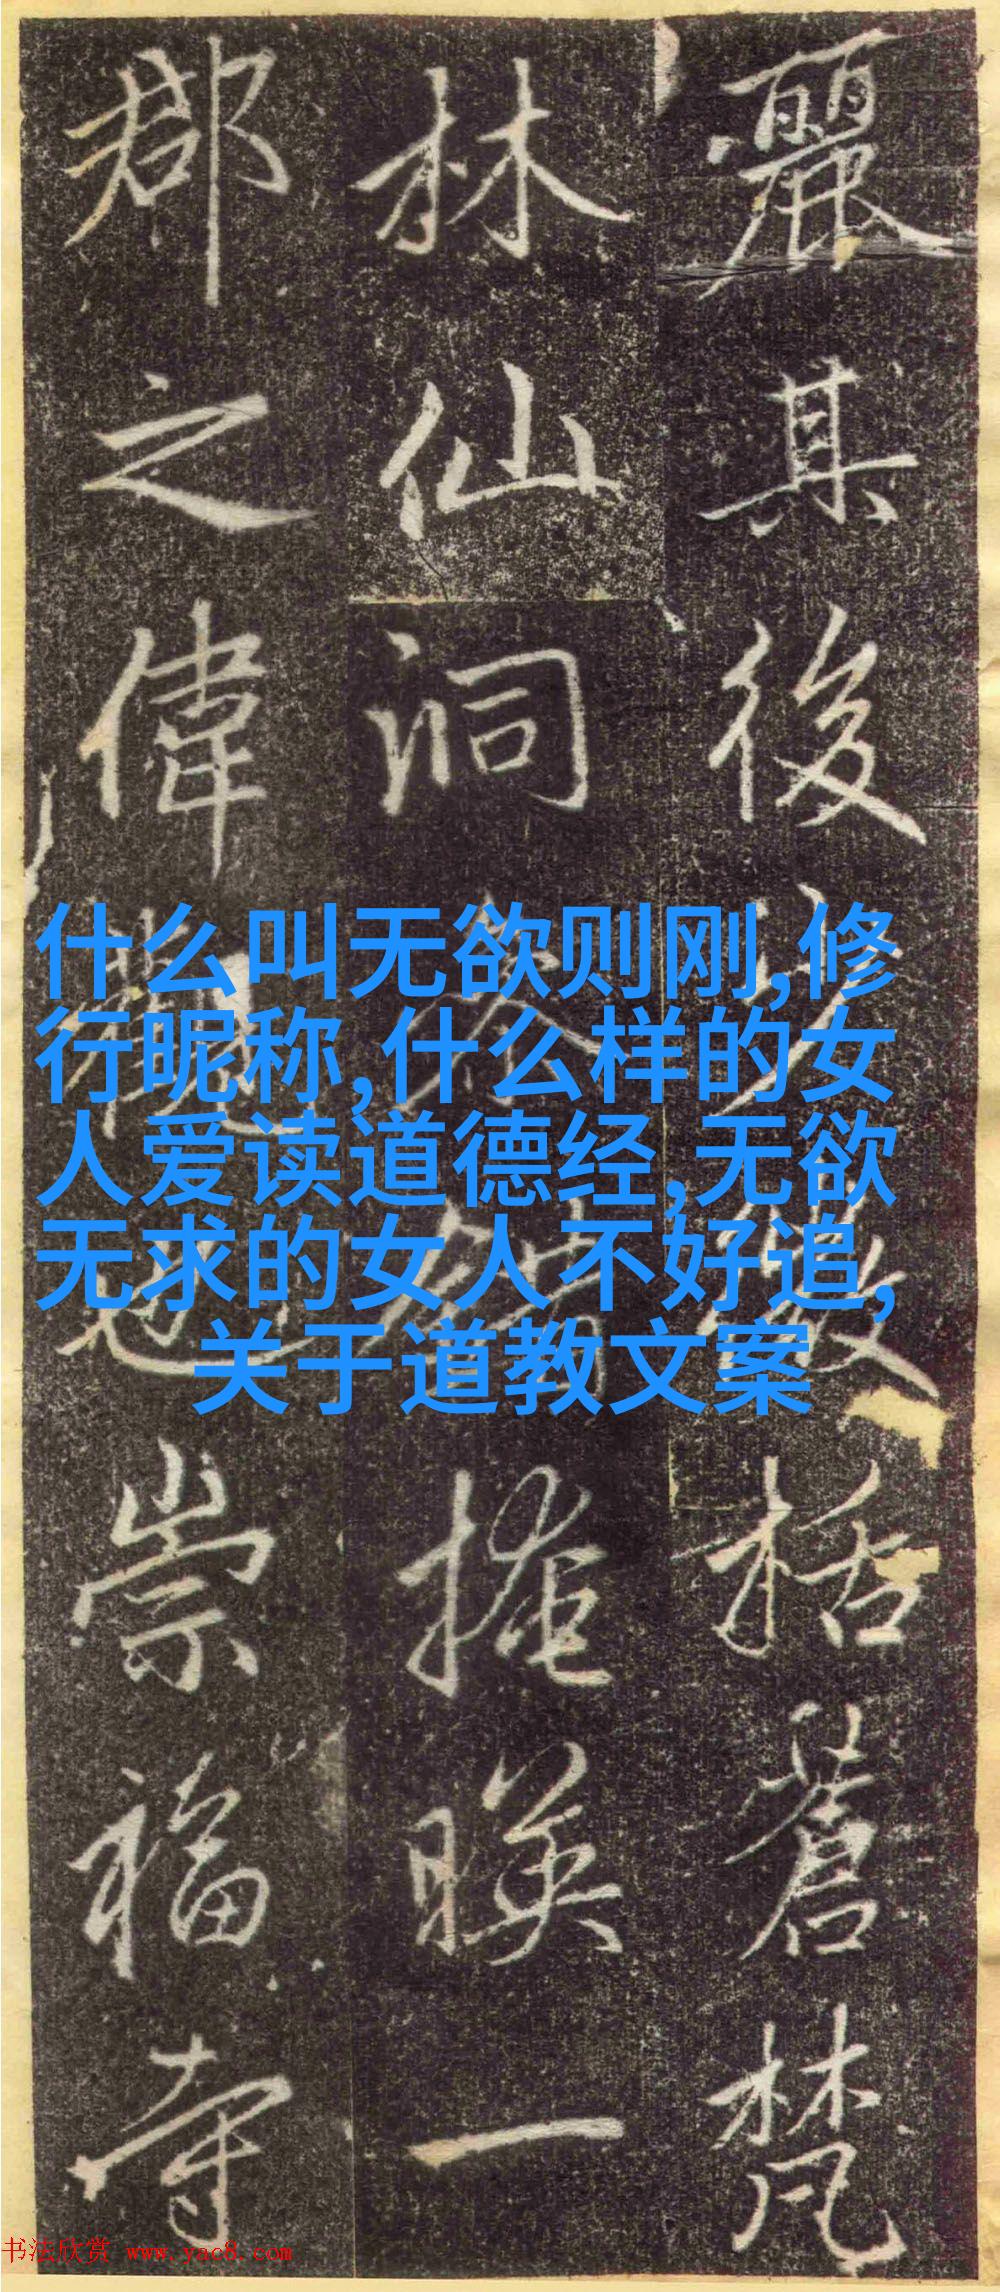 麗其後以括蒼梵
林仙洞掩暎一
郡之偉觀也崇福寺
什么叫无欲则刚,修
行昵称,什么样的女
人爱读道德经,无欲
无求的女人不好追,
关于道教文案
书法欣赏 www.yac8.com